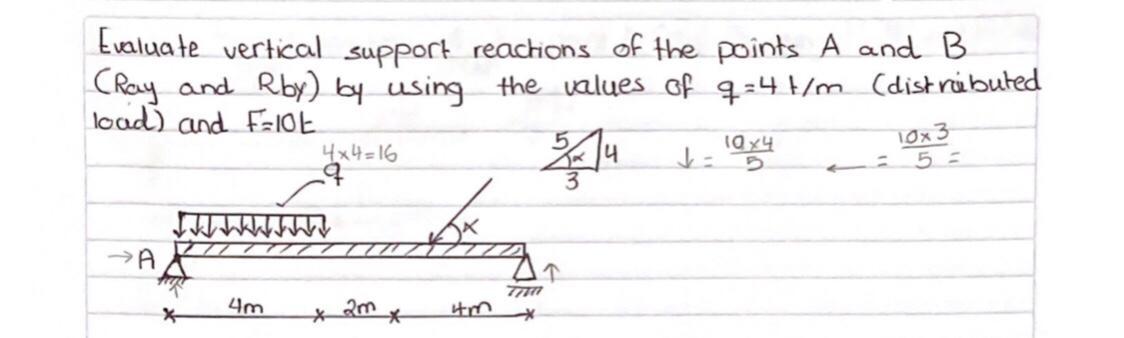 Evaluate vertical support reactions of the points A and B
(Ray and Rby) by using the values of q=4 t/m (distributed
load) and F=10t
5 α 4 3
↓ = 10x4/5
← = 10x3/5 =
4x4=16
q
α
→A
↑ ↑
4m x 2m x 4m